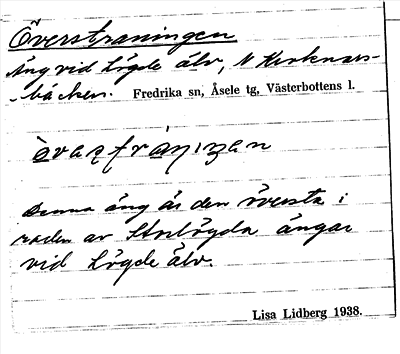 Överstraningen
Äng vid Lögde älv, N Kvoknars-
bäcken. Fredrika sn, Åsele tg, Västerbottens l.
Denna äng är den översta i
raden av Storlögda ängar
vid Lögde älv.
Lisa Lidberg 1938.